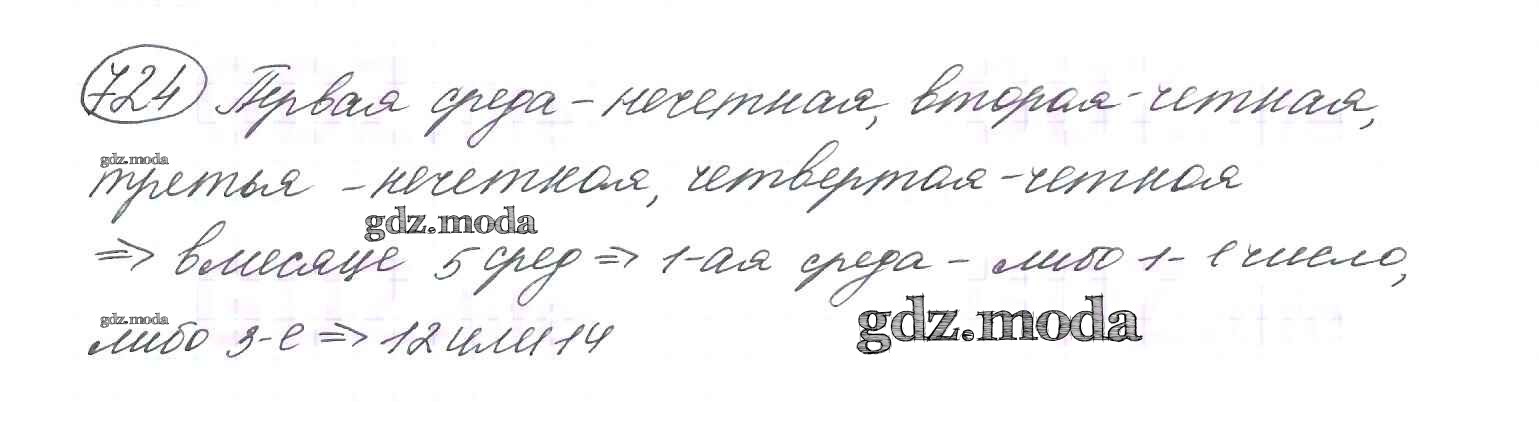 724 Первая среда - нечетная, вторая - четная,
gdz.moda
третья - нечетная, четвертая - четная
gdz.moda
=> в месяце 5 сред => 1-ая среда - либо 1-е число,
gdz.moda
gdz.moda
либо 3-е => 12 или 14